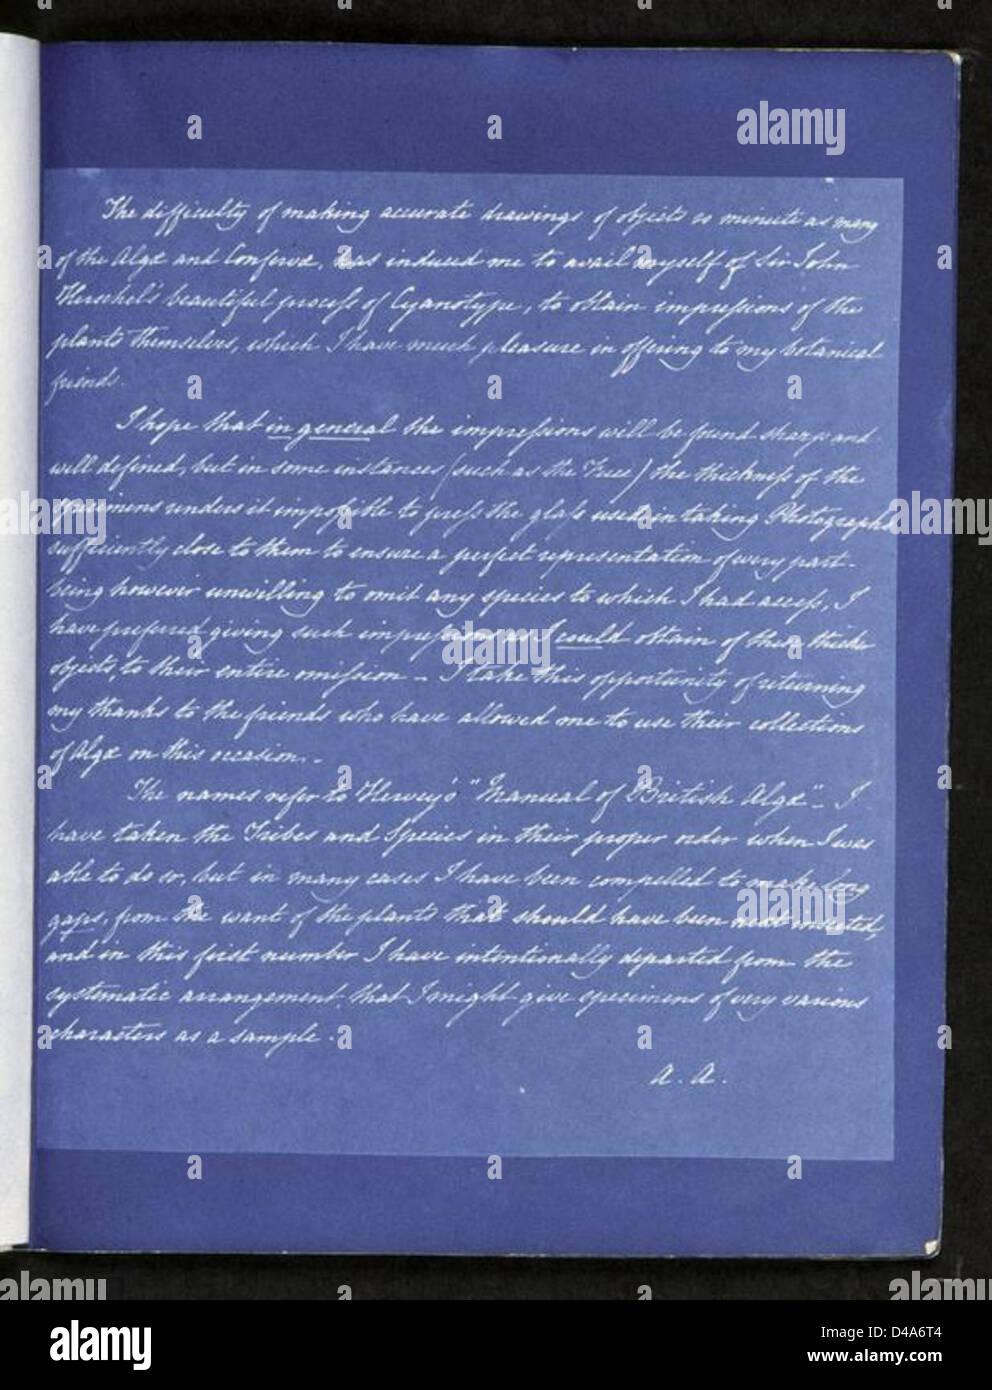 The difficulty of making accurate drawings of objects so minute as many
of the Algæ and Confervæ, has induced me to avail myself of Sir John
Herschel's beautiful process of Cyanotype, to obtain impressions of the
plants themselves, which I have much pleasure in offering to my botanical
friends.
I hope that in general the impressions will be found sharp and
well defined, but in some instances (such as the Fuci) the thickness of the
specimens renders it impossible to press the glass used in taking Photographs
sufficiently close to them to ensure a perfect representation of every part.
being however unwilling to omit any species to which I had access, I
have preferred giving such impressions as I could obtain of these thicker
objects, to their entire omission – I take this opportunity of returning
my thanks to the friends who have allowed me to use their collections
of Algæ on this occasion. –
The names refer to Harvey's "Manual of British Algæ" – I
have taken the Tribes and Species in their proper order when I was
able to do so, but in many cases I have been compelled to make long
gaps, from the want of the plants that should have been next inserted,
and in this first number I have intentionally departed from the
systematic arrangement that I might give specimens of very various
characters as a sample.
A. A.
alamy
alamy
Image ID: D4A6T4
www.alamy.com